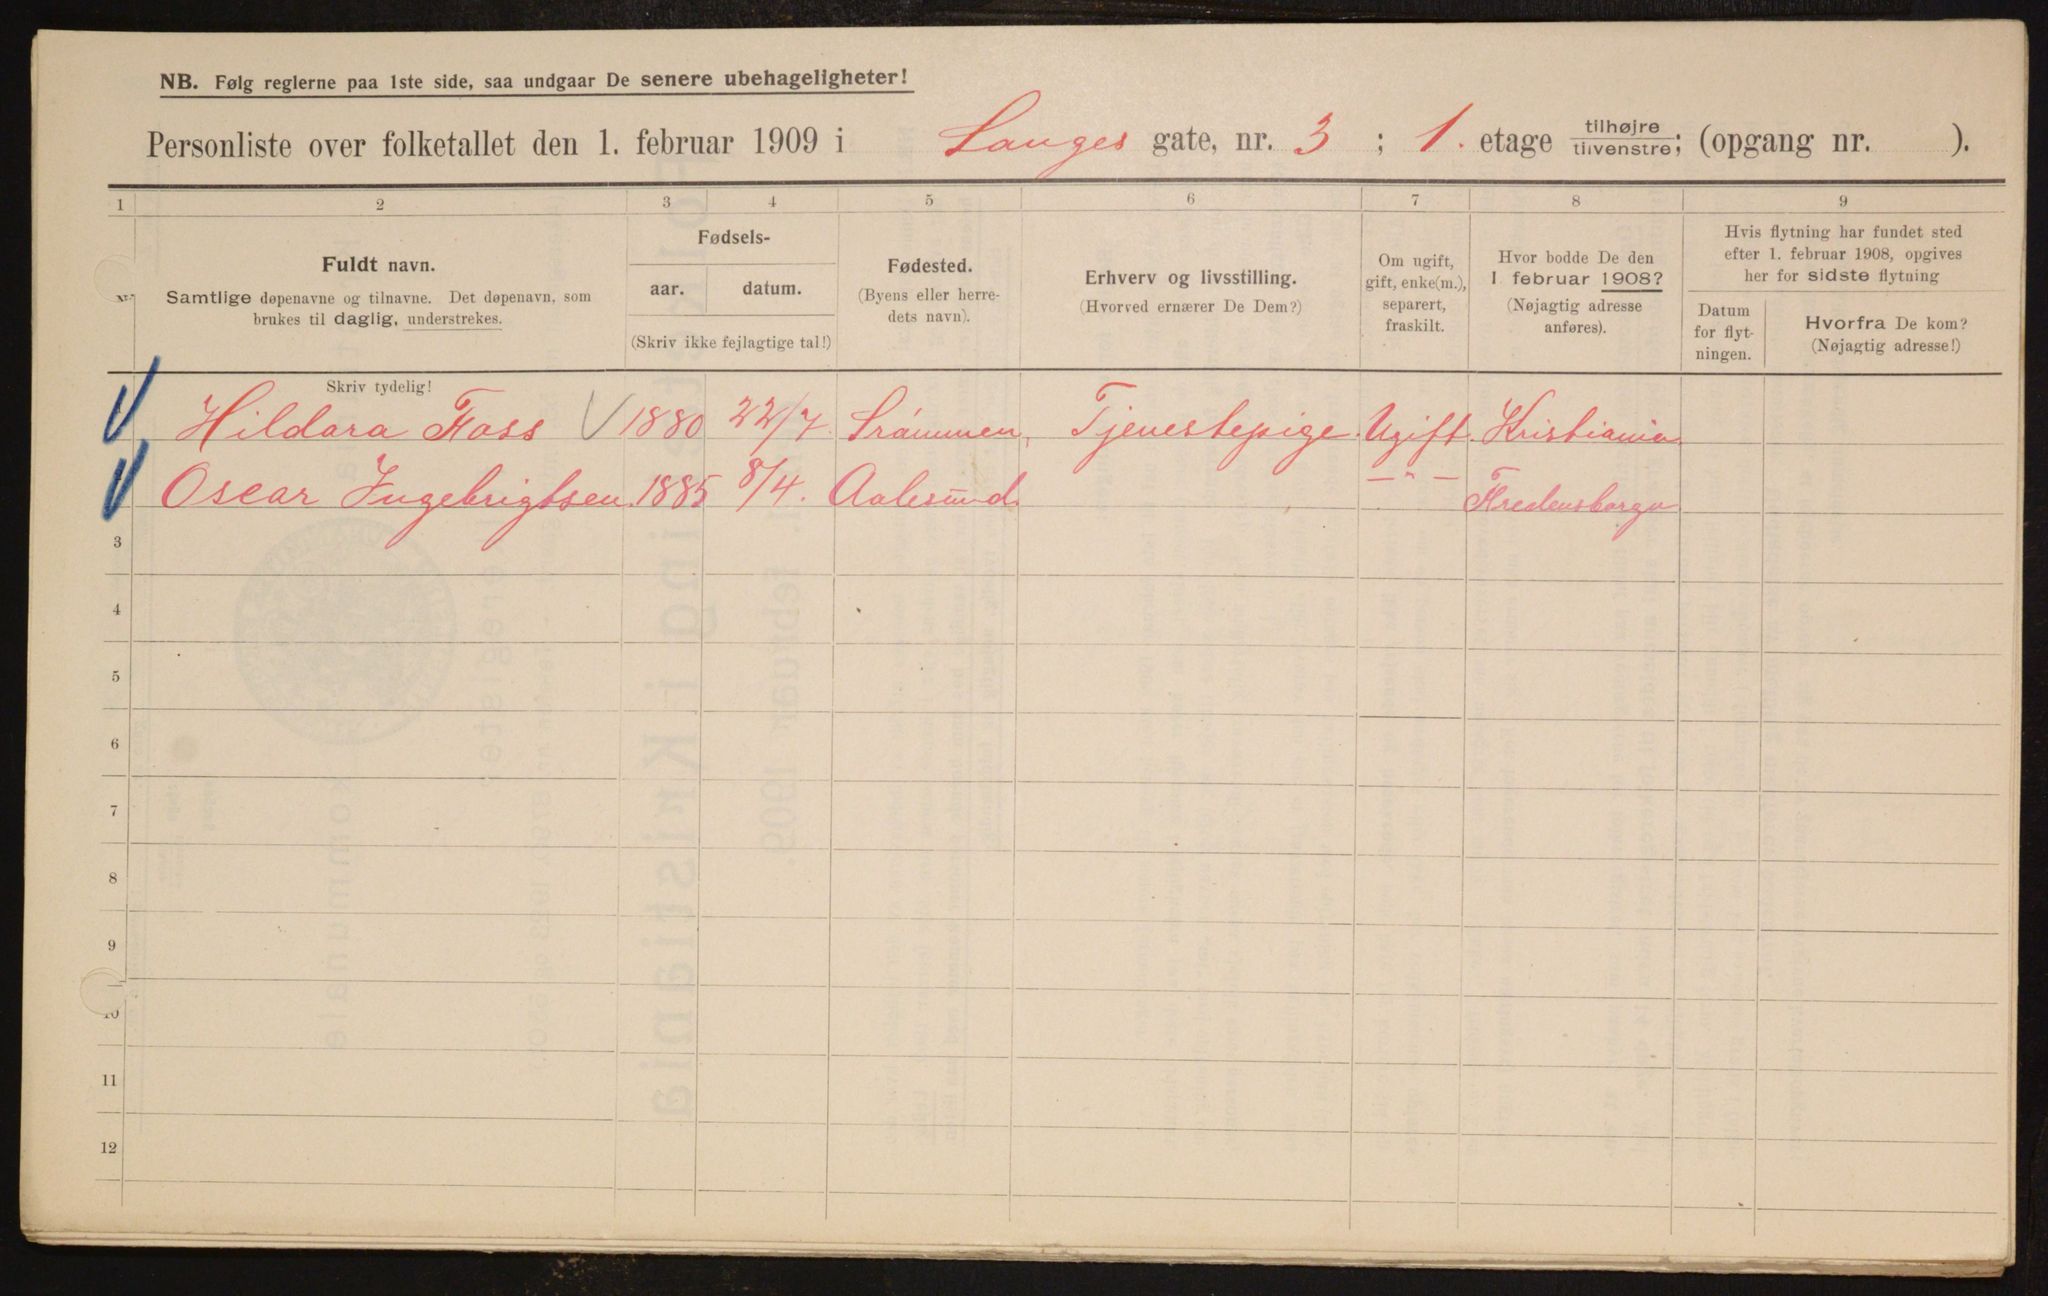 NB. Følg reglerne paa 1ste side, saa undgaar De senere ubehageligheter!
Personliste over folketallet den 1. februar 1909 i Langes gate, nr. 3 ; 1. etage tilhøjre tilvenstre; (opgang nr. ).
1 2 3 4 5 6 7 8 9
Nr.
Fuldt navn.
Samtlige døpenavne og tilnavne. Det døpenavn, som
brukes til daglig, understrekes.
Skriv tydelig!
Fødsels-
aar. datum.
(Skriv ikke fejlagtige tal!)
Fødested.
(Byens eller herre-
dets navn).
Erhverv og livsstilling.
(Hvorved ernærer De Dem?)
Om ugift,
gift, enke(m.),
separert,
fraskilt.
Hvor bodde De den
1 februar 1908?
(Nøjagtig adresse
anføres).
Hvis flytning har fundet sted
efter 1. februar 1908, opgives
her for sidste flytning
Datum
for flyt-
ningen.
Hvorfra De kom?
(Nøjagtig adresse!)
Hildora Foss 1880 22/7. Strömmen, Tjenestepige. Ugift. Kristiania
Oscar Ingebrigtsen. 1885 8/4. Aalesund. — " — Fredensborgv
3
4
5
6
7
8
9
10
11
12